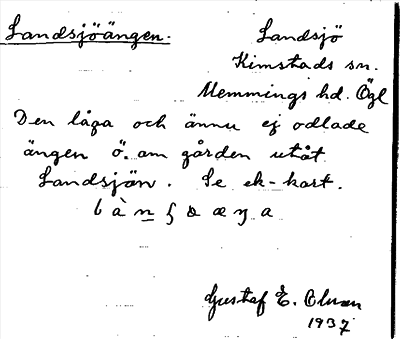 Landsjöängen. Landsjö
Kimstads sn.
Memmings hd. Ögl
Den låga och ännu ej odlade
ängen ö. om gården utåt
Landsjön. Se ek-kart.
Gustaf E. Olsson
1937